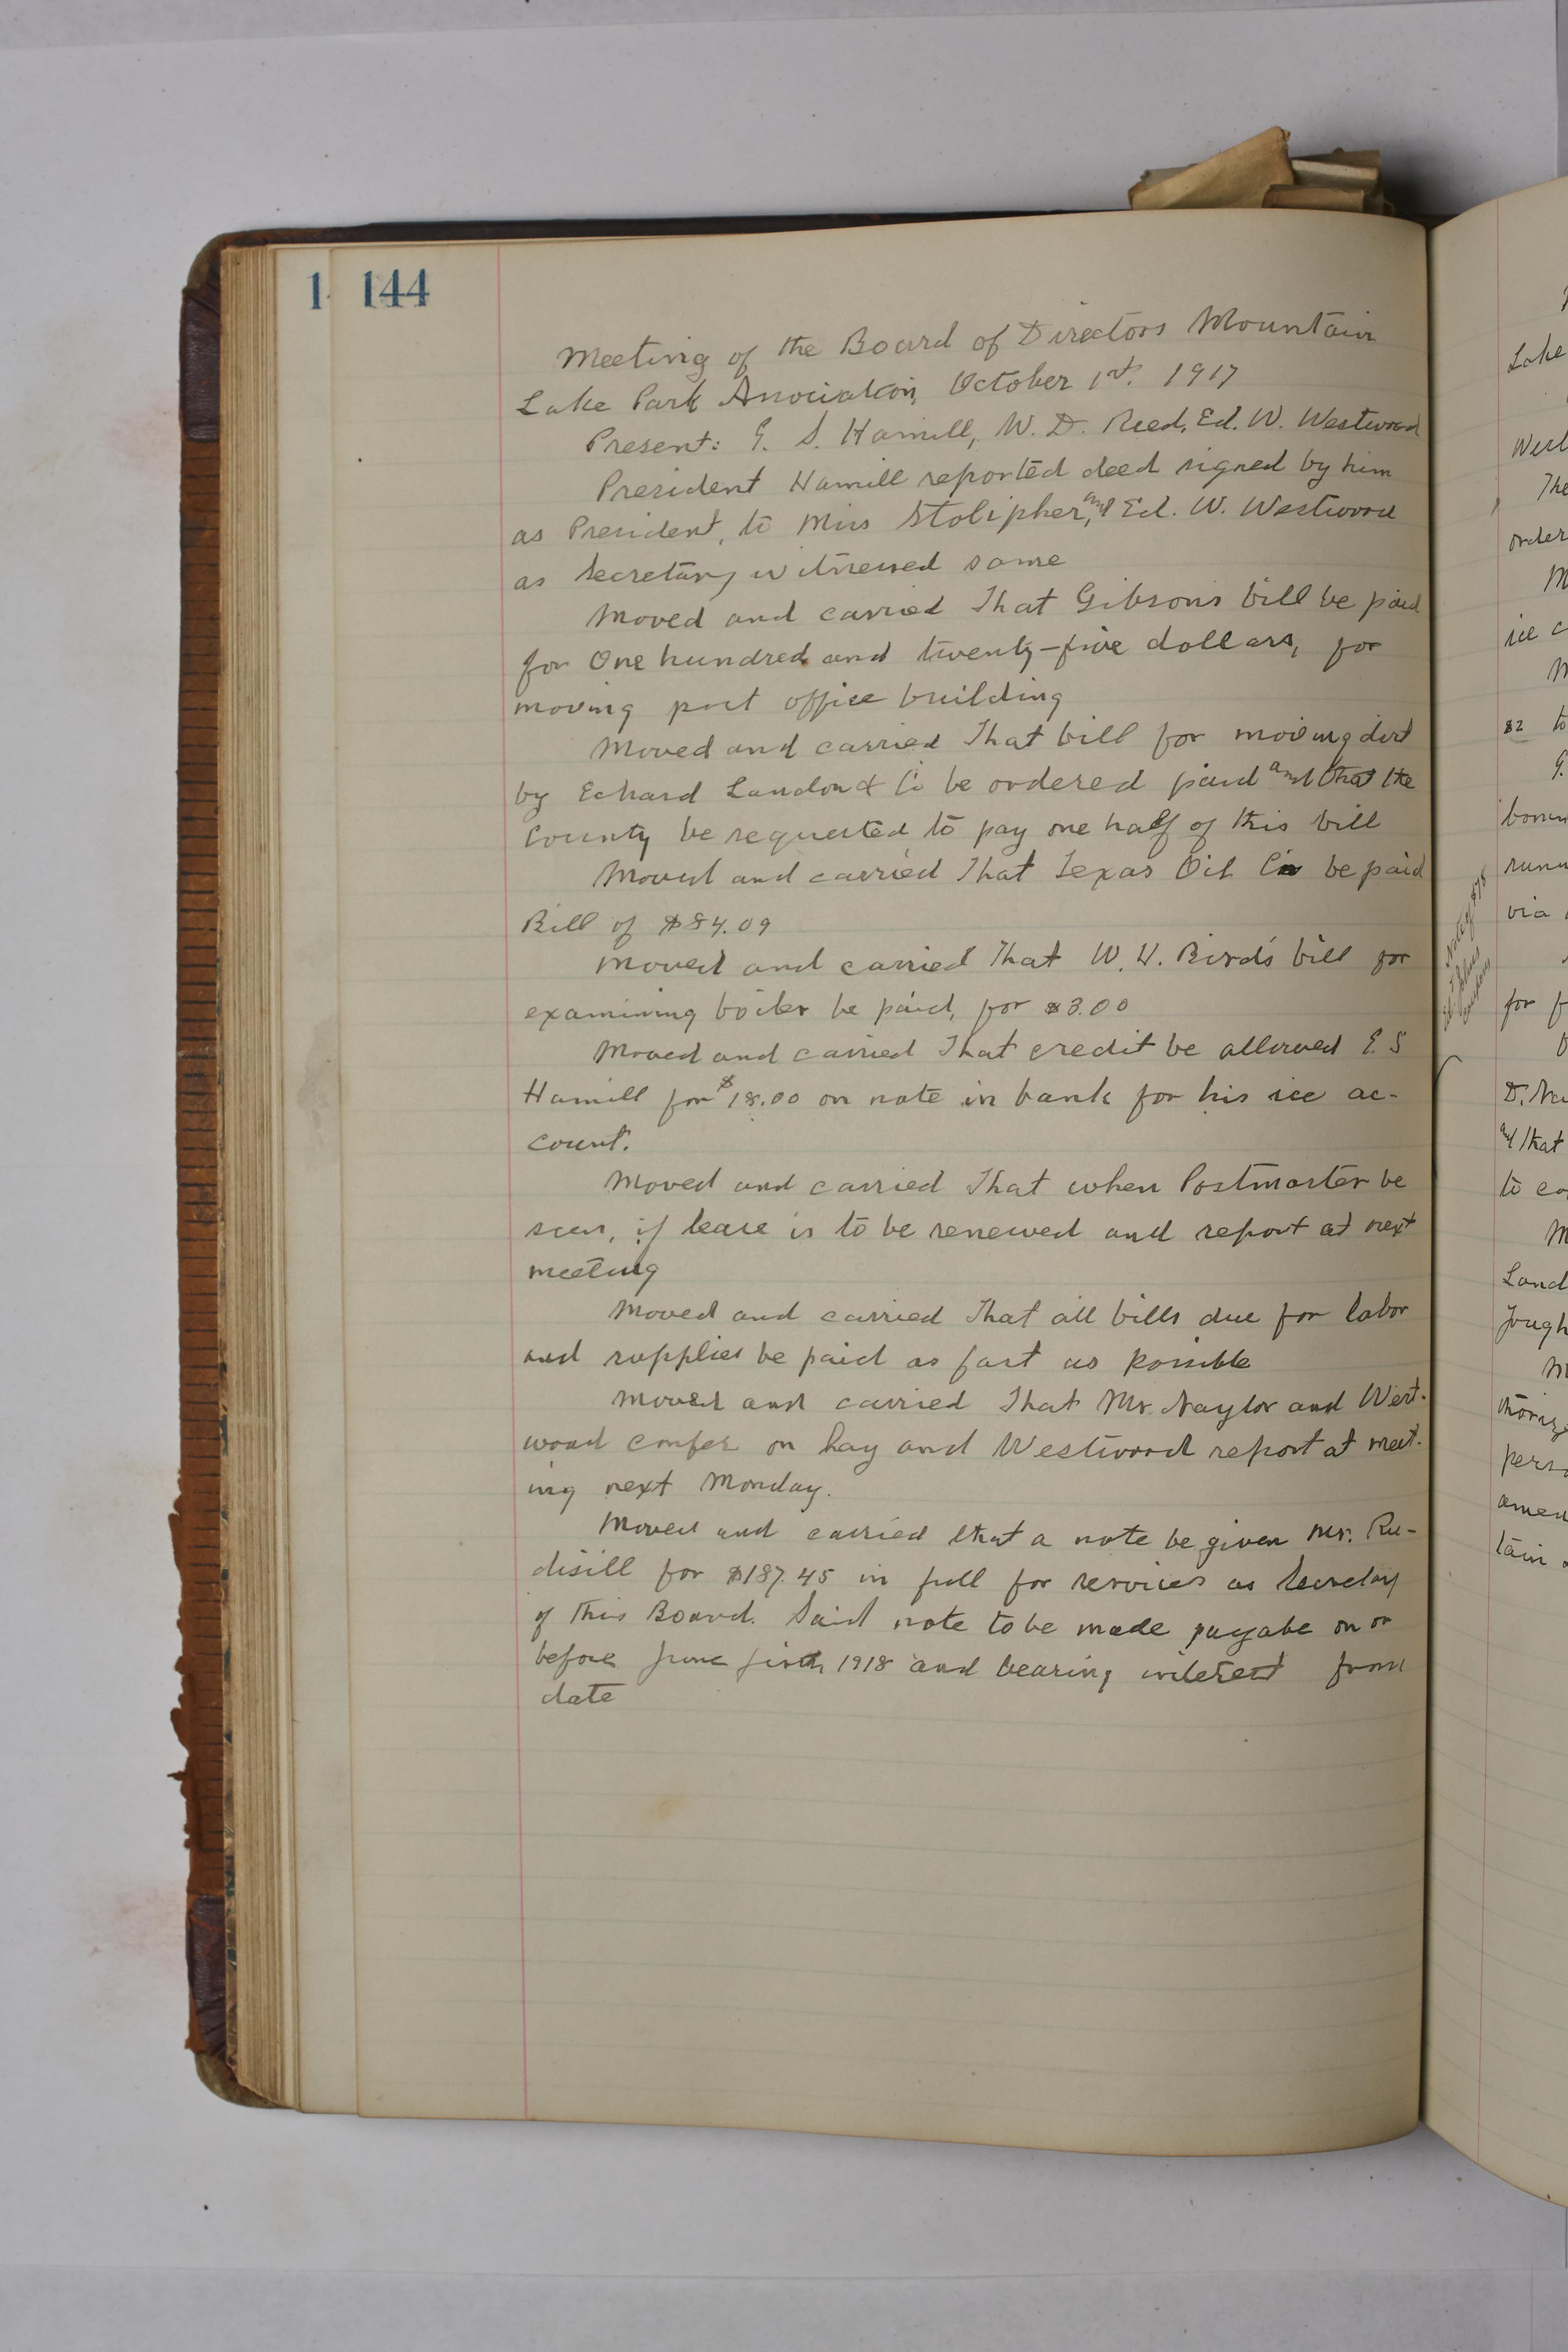 144
Meeting of the Board of Directors Mountain
Lake Park Association, October 1st. 1917
Present: G. S. Hamill, W. D. Reed, Ed. W. Westwood
President Hamill reported deed signed by him
as President, to Miss Stolipher, and Ed. W. Westwood
as Secretary witnessed same
Moved and carried That Gibsons bill be paid
for One hundred and twenty-five dollars, for
moving post office building
Moved and carried That bill for moving dirt
by Echard Landon & Co be ordered paid and that the
County be requested to pay one half of this bill
Moved and carried That Texas Oil Co be paid
Bill of $84.09
Moved and carried That W. W. Bird's bill for
examining boiler be paid, for $3.00
Moved and carried That credit be allowed E. S
Hamill for $18.00 on note in bank for his ice ac-
count.
Moved and carried That when Postmaster be
seen, if lease is to be renewed and report at next
meeting
Moved and carried That all bills due for labor
and supplies be paid as fast as possible
Moved and carried That Mr. Naylor and West-
wood confer on hay and Westwood report at meet-
ing next Monday.
Moved and carried that a note be given Mr. Ru-
disill for $187.45 in full for services as Secretary
of this Board. Said note to be made payabe on or
before June first 1918 and bearing interest from
date
Lake
The
order
82 to
via
for
D. Na
and that
to
Land
pers
amen
tain